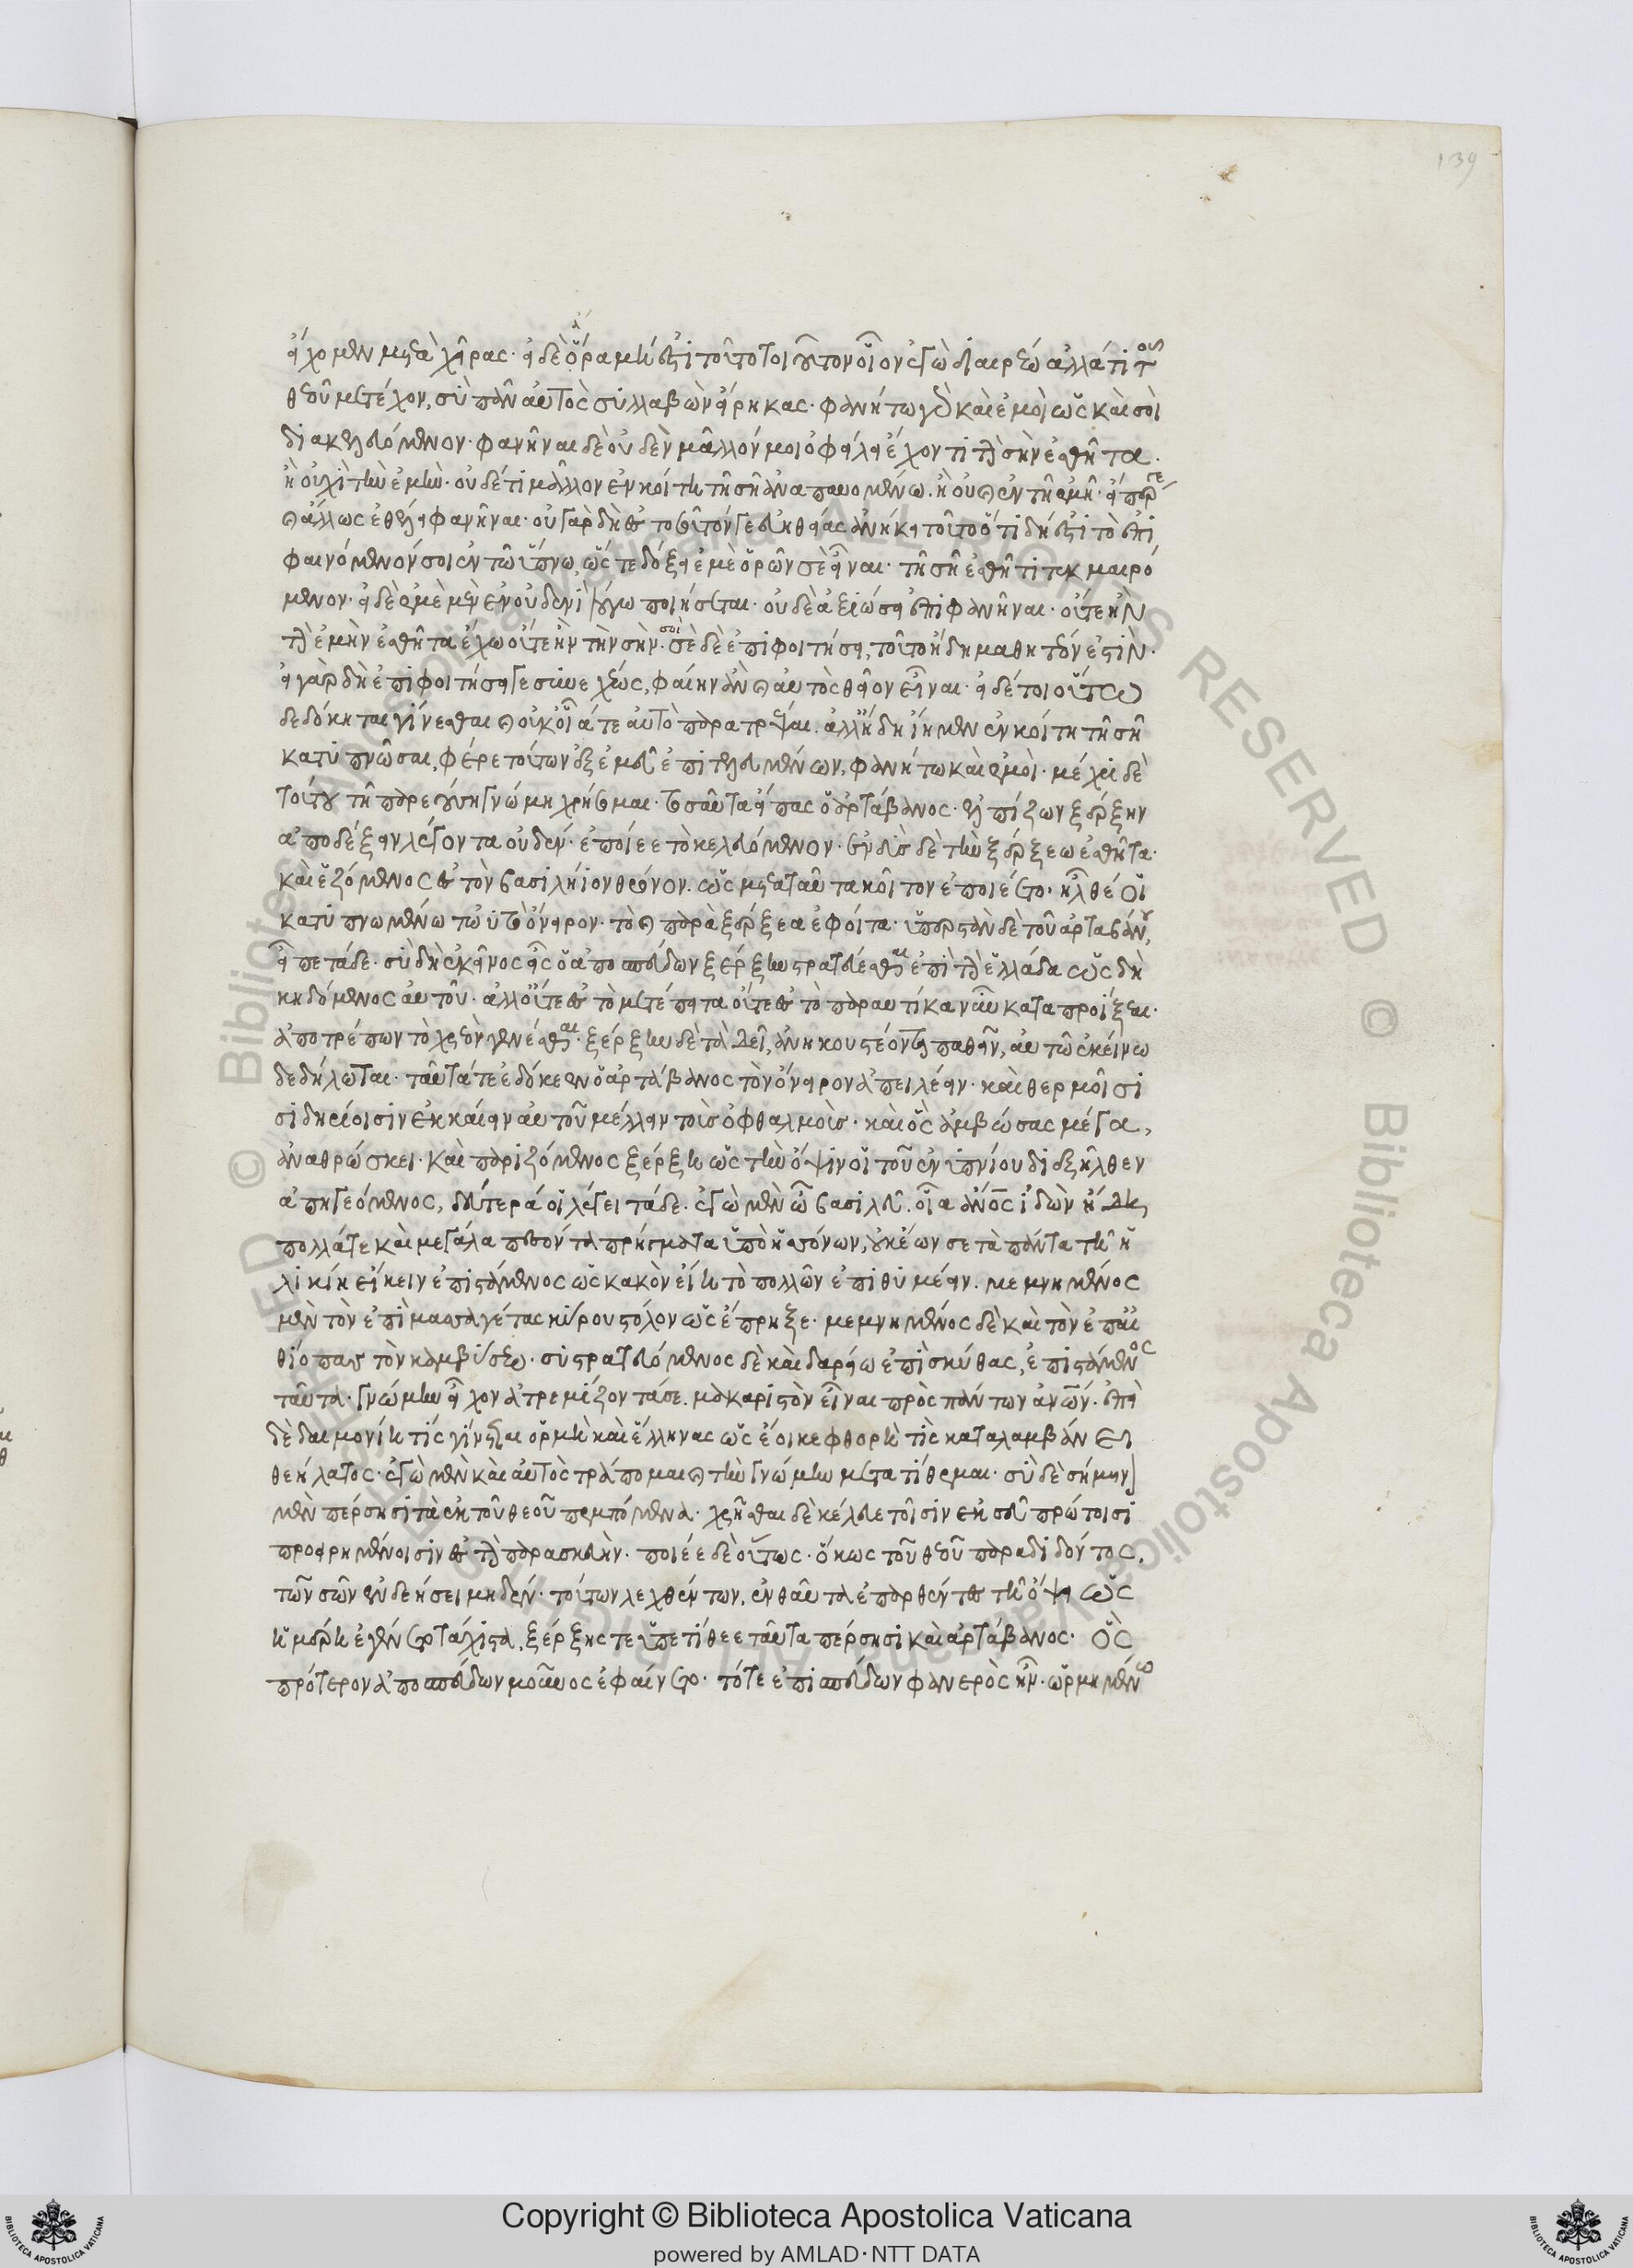 139
εἴχομεν μετὰ χεῖρας· εἰ δὲ ἄρα μή ἐστι τοῦτο τοιοῦτον οἷον ἐγὼ διαιρέω ἀλλά τι τοῦ
θεοῦ μετέχον, σὺ πᾶν αὐτὸς συλλαβὼν εἴρηκας· φανήτω γὰρ καὶ ἐμοὶ ὡς καὶ σοὶ
διακελευόμενον· φανῆναι δὲ οὐδὲν μᾶλλόν μοι ὀφείλει ἔχοντι τὴν σὴν ἐσθῆτα·
ἢ οὐχὶ τὴν ἐμὴν· οὐδέ τι μᾶλλον ἐν κοίτῃ τῇ σῇ ἀναπαυομένω· ἢ οὐ καὶ ἐν τῇ ἐμῇ· εἴ πέρ γε
καὶ ἄλλως ἐθέλει φανῆναι· οὐ γὰρ δὴ ἐς τοσοῦτόν γε εὐηθείας ἀνήκει τοῦτο ὅ τι δή ἐστι τὸ ἐπι
φαινόμενόν σοι ἐν τῶ ὕπνω, ὥστε δόξει ἐμὲ ὁρῶν σὲ εἶναι· τῇ σῇ ἐσθῆτι τεκμαιρό
μενον· εἰ δὲ ἐμὲ μὲν ἐν οὐδενὶ λόγω ποιήσεται· οὐδὲ ἀξιώσει ἐπιφανῆναι· οὔτε ἢν
τὴν ἐμὴν ἐσθῆτα ἔχω οὔτε ἢν τὴν σὴν· σὲ δὲ ἐπιφοιτήσει, τοῦτο ἤδη μαθητέον ἐστὶν·
εἰ γὰρ δὴ ἐπιφοιτήσει γε συνεχέως, φαίην ἂν καὶ αὐτὸς θεῖον εἶναι· εἰ δέ τοι οὕτω
δεδόκηται γίνεσθαι καὶ οὐκ οἷά τε αὐτὸ παρατρέψαι· ἀλλ' ἤδη δεῖ ἐμὲ ἐν κοίτη τῇ σῇ
κατυπνῶσαι, φέρε τούτων ἐξ ἐμεῦ ἐπιτελευμένων, φανήτω καὶ ἐμοὶ· μέχρι δὲ
τούτου τῇ παρεούσῃ γνώμῃ χρήσομαι· τοσαῦτα εἴπας ὁ ἀρτάβανος· ἐλπίζων ξέρξην
ἀποδέξειν λέγοντα οὐδέν· ἐποίεε τὸ κελευόμενον· ἐνδὺς δὲ τὴν ξέρξεω ἐσθῆτα·
καὶ ἑζόμενος ἐς τὸν βασιλήιον θρόνον· ὡς μετὰ ταῦτα κοῖτον ἐποιέετο· ἦλθέ οἱ
κατυπνωμένω τὠυτὸ ὄνειρον· τὸ καὶ παρὰ ξέρξεα ἐφοίτα· ὑπερστὰν δὲ τοῦ ἀρταβάνου,
εἶπε τάδε· σὺ δὴ ἐκεῖνος εἷς ὁ ἀποσπεύδων ξέρξην στρατεύεσθαι ἐπὶ τὴν ἑλλάδα ὡς δὴ
κηδόμενος αὐτοῦ· ἀλλ' οὔτε ἐς τὸ μετέπειτα οὔτε ἐς τὸ παραυτίκα νῦν καταπροίξεαι·
ἀποτρέπων τὸ χρεὸν γενέσθαι· ξέρξην δὲ τὰ δεῖ, ἀνηκουστέοντα παθεῖν, αὐτῶ ἐκείνω
δεδήλωται· ταῦτά τε ἐδόκεεν ὁ ἀρτάβανος τὸν ὄνειρον ἀπειλέειν· καὶ θερμοῖσι
σιδηρίοισιν ἐκκαίειν αὐτοῦ μέλλειν τοὺς ὀφθαλμοὺς· καὶ ὃς ἀμβώσας μέγα,
ἀναθρώσκει· καὶ παριζόμενος ξέρξη ὡς τὴν ὄψιν οἱ τοῦ ἐνυπνίου διεξῆλθεν
ἀπηγεόμενος, δεύτερά οἱ λέγει τάδε· ἐγὼ μὲν ὦ βασιλεῦ· οἷα ἄνος ἰδὼν ἤδη
πολλά τε καὶ μεγάλα πεσόντα πρήγματα ὑπὸ ἡσσόνων, οὐκ ἔων σε τὰ πάντα τῇ ἡ
λικίῃ εἴκειν ἐπιστάμενος ὡς κακὸν εἴη τὸ πολλῶν ἐπιθυμέειν· μεμνημένος
μὲν τὸν ἐπὶ μασσαγέτας κύρου στόλον ὡς ἔπρηξε· μεμνημένος δὲ καὶ τὸν ἐπ' αἰ
θίοπας τὸν καμβύσεω· συστρατευόμενος δὲ καὶ δαρείω ἐπὶ σκύθας, ἐπιστάμενος
ταῦτα· γνώμην εἶχον ἀτρεμίζοντά σε· μακαριστὸν εἶναι πρὸς πάντων ἀνων· ἐπεὶ
δὲ δαιμονίη τίς γίνεται ὁρμὴ καὶ ἕλληνας ὡς ἔοικε φθορή τὶς καταλαμβάνει
θεήλατος· ἐγὼ μὲν καὶ αὐτὸς τράπομαι καὶ τὴν γνώμην μετατίθεμαι· σὺ δὲ σήμηνον
μὲν πέρσησι τὰ ἐκ τοῦ θεοῦ πεμπόμενα· χρῆσθαι δὲ κέλευε τοῖσιν ἐκ σεῦ πρώτοισι
προειρημένοισιν ἐς τὴν παρασκευὴν· ποίεε δὲ οὕτως· ὅκως τοῦ θεοῦ παραδιδόντος,
τῶν σῶν ἐνδεήσει μηδέν· τούτων λεχθέντων, ἐνθαῦτα ἐπαρθέντες τῇ ὄψει ὡς
ἡμέρη ἐγένετο τάχιστα, ξέρξης τε ὑπετίθεε ταῦτα πέρσησι καὶ ἀρτάβανος· ὃς
πρότερον ἀποσπεύδων μοῦνος ἐφαίνετο· τότε ἐπισπεύδων φανερὸς ἦν· ὡρμημένω
Copyright © Biblioteca Apostolica Vaticana
powered by AMLAD·NTT DATA